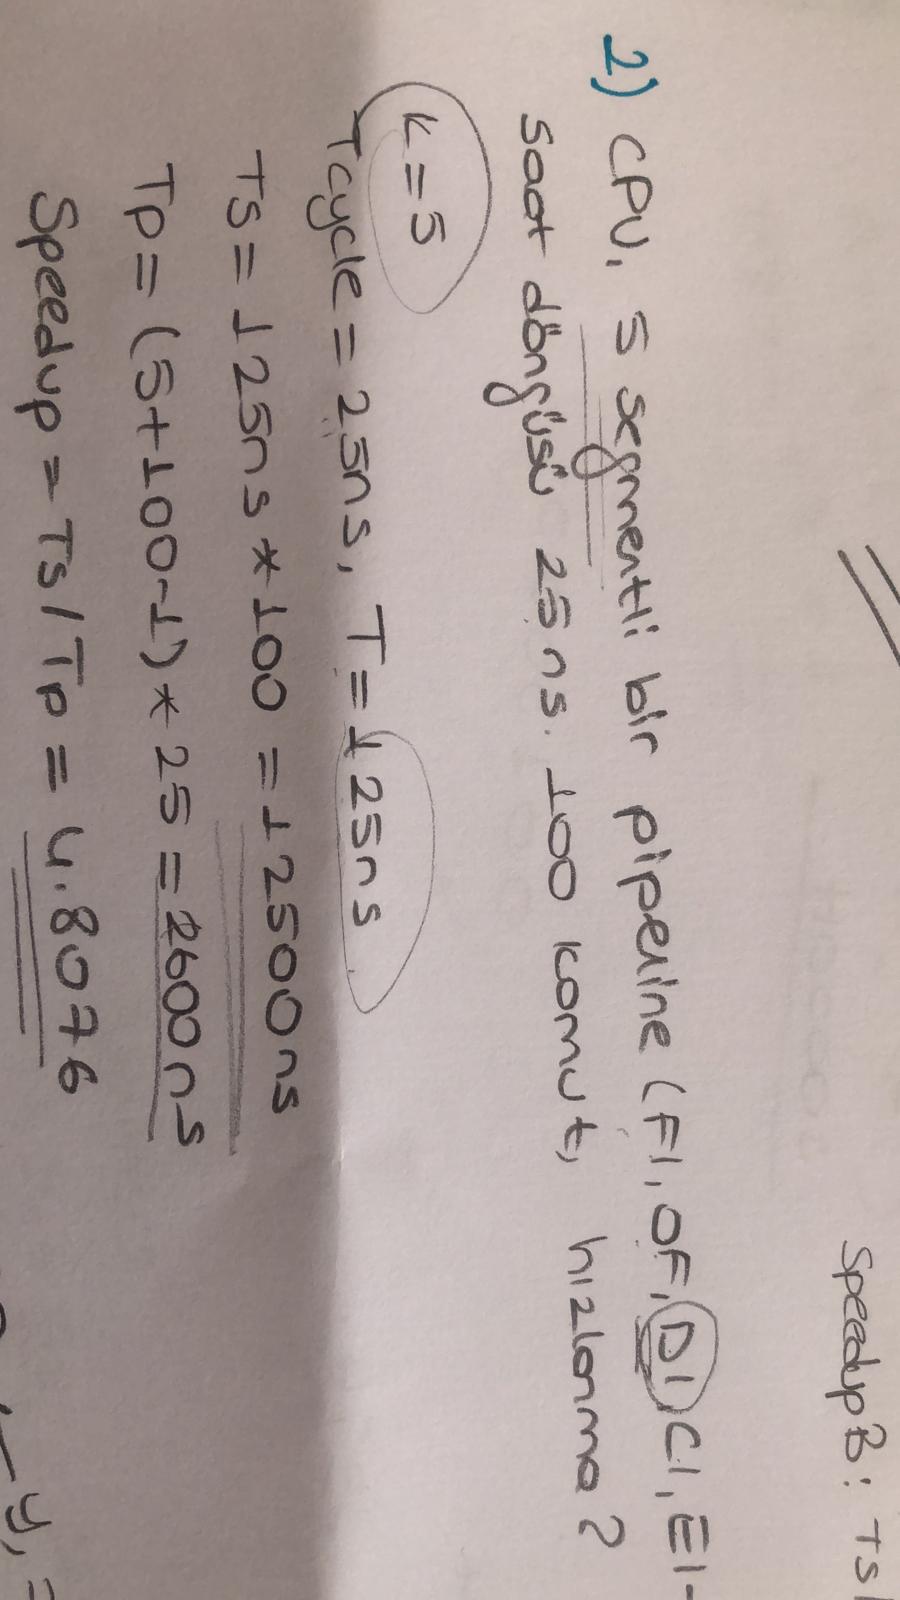 SpeedupB: TS/
2) CPU, 5 segmentli bir pipeline (FI, OF, DI, CI, EI-
saat döngüsü 25ns. 100 komut, hızlanma?
K=5
Tcycle = 25ns, T=125ns
TS= 125ns * 100 = 12500ns
Tp= (5+100-1) * 25 = 2600ns
Speedup = TS/Tp = 4.8076
y, =